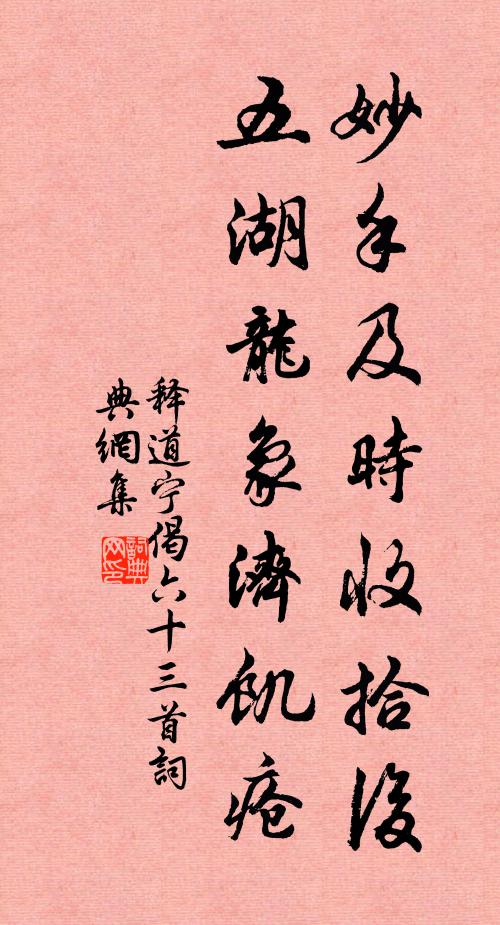 妙手及時收拾後
五湖龍象濟飢瘡
释道宁偈六十三首詞
典網集
詞典
网印